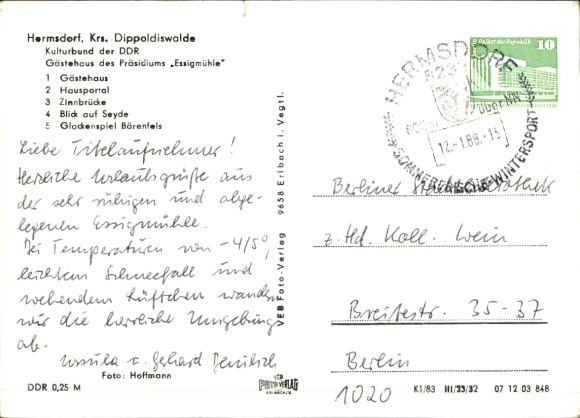 Hermsdorf, Krs. Dippoldiswalde
Kulturbund der DDR
Gästehaus des Präsidiums „Essigmühle"
1 Gästehaus
2 Hausportal
3 Zinnbrücke
4 Blick auf Seyde
5 Glockenspiel Bärenfels
Liebe Titelaufnehmer!
Herzliche Urlaubsgrüße aus
der sehr ruhigen und abge-
legenen Essigmühle.
Bei Temperaturen von -4/5°,
leichtem Schneefall und
wehendem Lüftchen wandern
wir die herrliche Umgebung
ab.
Ursula u. Gerhard
Foto: Hoffmann
DDR 0,25 M
VEB Foto-Verlag 9658 Erlbach i. Vogtl.
FOTO VERLAG
ERLBACH/V.
HERMSDORF
823
über NN
12.-1.88.-15
SOMMERFRISCHE WINTERSPORT
Palast der Republik
10
Berliner
z. Hd. Koll. Wein
Breitestr. 35-37
Berlin
1020
K1/83 III/23/32 07 12 03 848